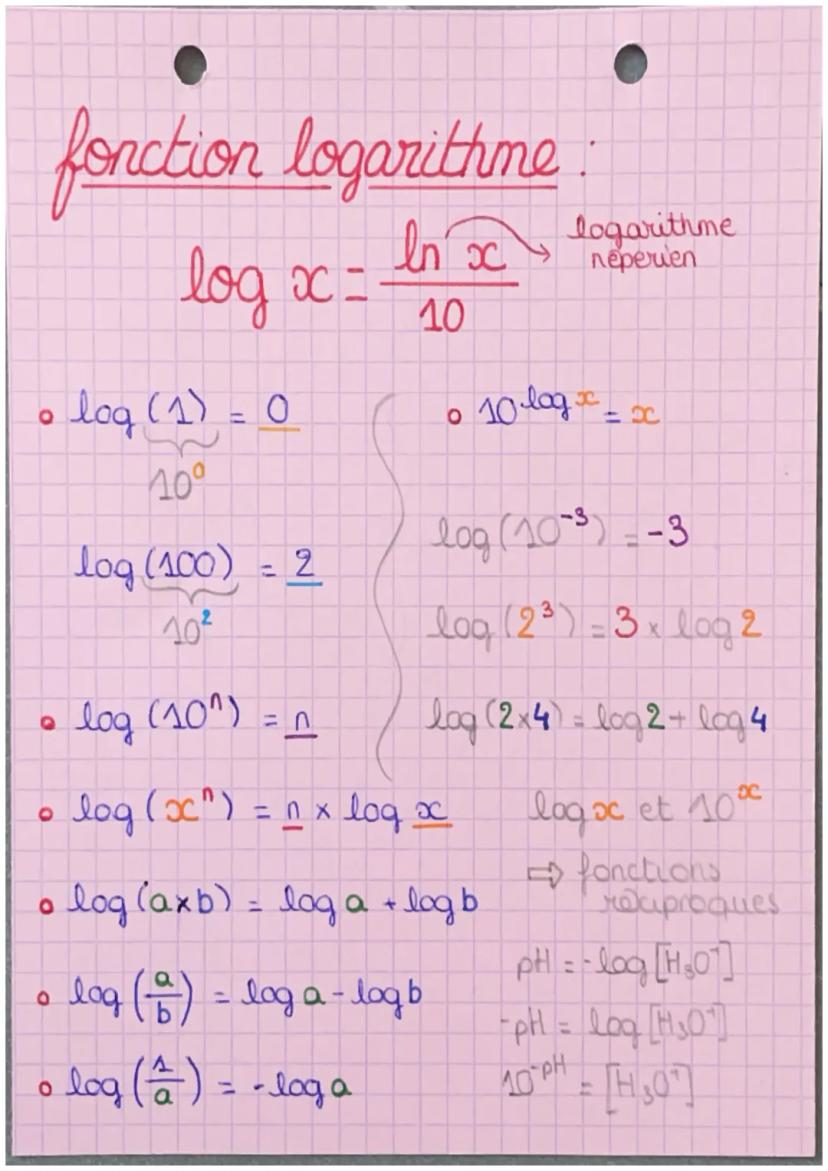 fonction logarithme :
log x = ln x / 10
logarithme
néperien
log (1) = 0
10⁰
log (100) = 2
10²
log (10ⁿ) = n
log (xⁿ) = n × log x
log (a×b) = log a + log b
log (a/b) = log a - log b
log (1/a) = - log a
10^log x = x
log (10⁻³) = -3
log (2³) = 3 × log 2
log (2×4) = log 2 + log 4
log x et 10^x
⇒ fonctions
réciproques
pH = - log [H₃O⁺]
-pH = log [H₃O⁺]
10^-pH = [H₃O⁺]